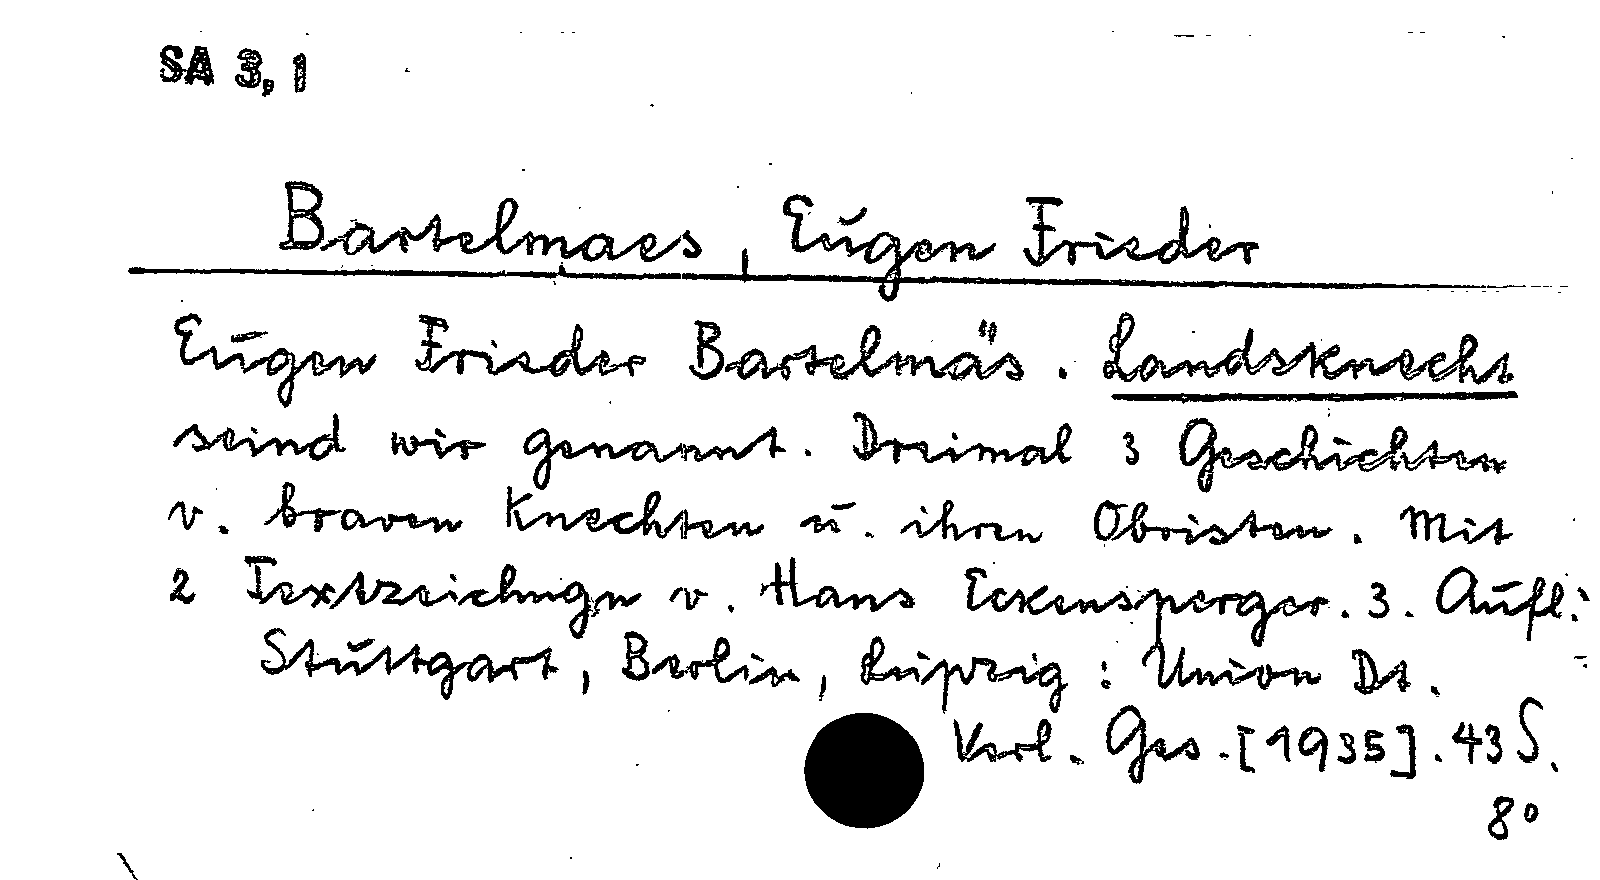 SA 3, 1
Bartelmaes, Eugen Frieder
Eugen Frieder Bartelmäs. Landsknecht
seind wir genannt. Dreimal 3 Geschichten
v. braven Knechten u. ihren Obristen. Mit
2 Textzeichngn v. Hans Eckensperger. 3. Aufl.:
Stuttgart, Berlin, Leipzig: Union Dt.
Verl. Ges. [1935]. 43 S.
8°